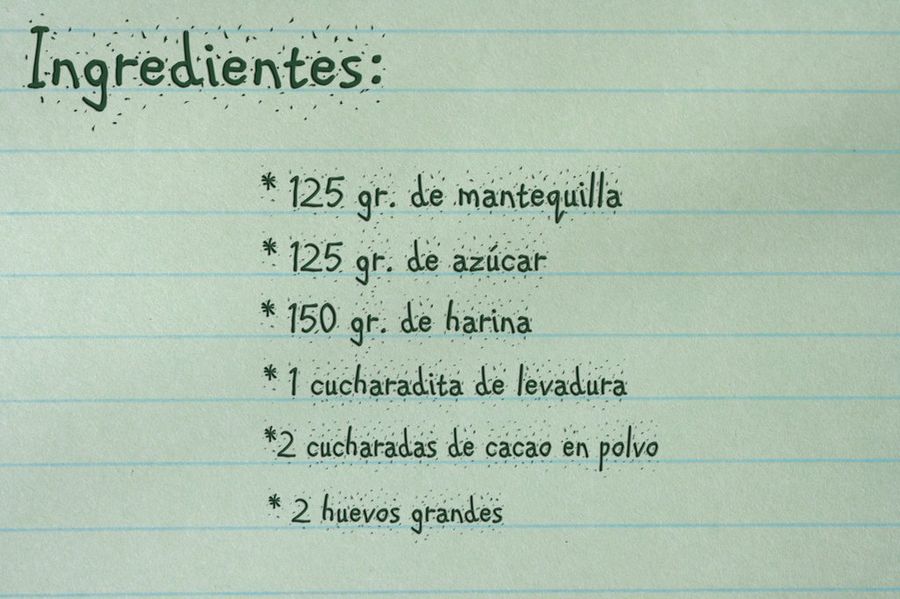 Ingredientes:
* 125 gr. de mantequilla
* 125 gr. de azúcar
* 150 gr. de harina
* 1 cucharadita de levadura
*2 cucharadas de cacao en polvo
* 2 huevos grandes